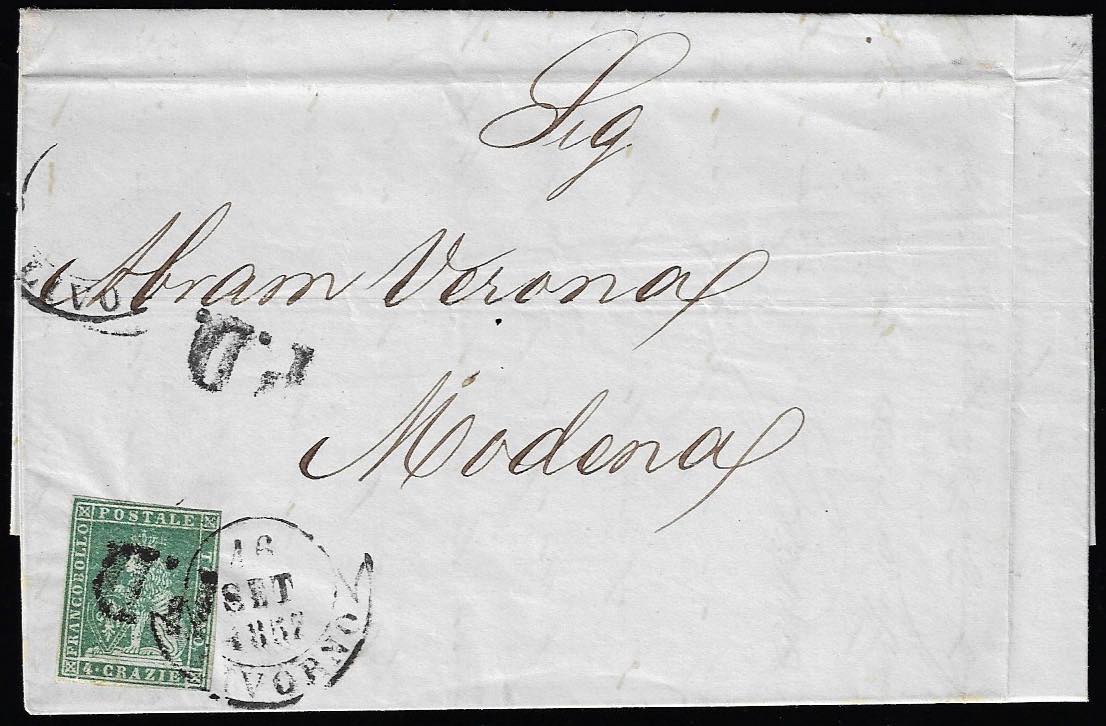 Sig
Abram Verona
LIVO
P.D.
Modena
FRANCOBOLLO POSTALE
4·CRAZIE
P.D.
16
SET
1857
LIVORNO